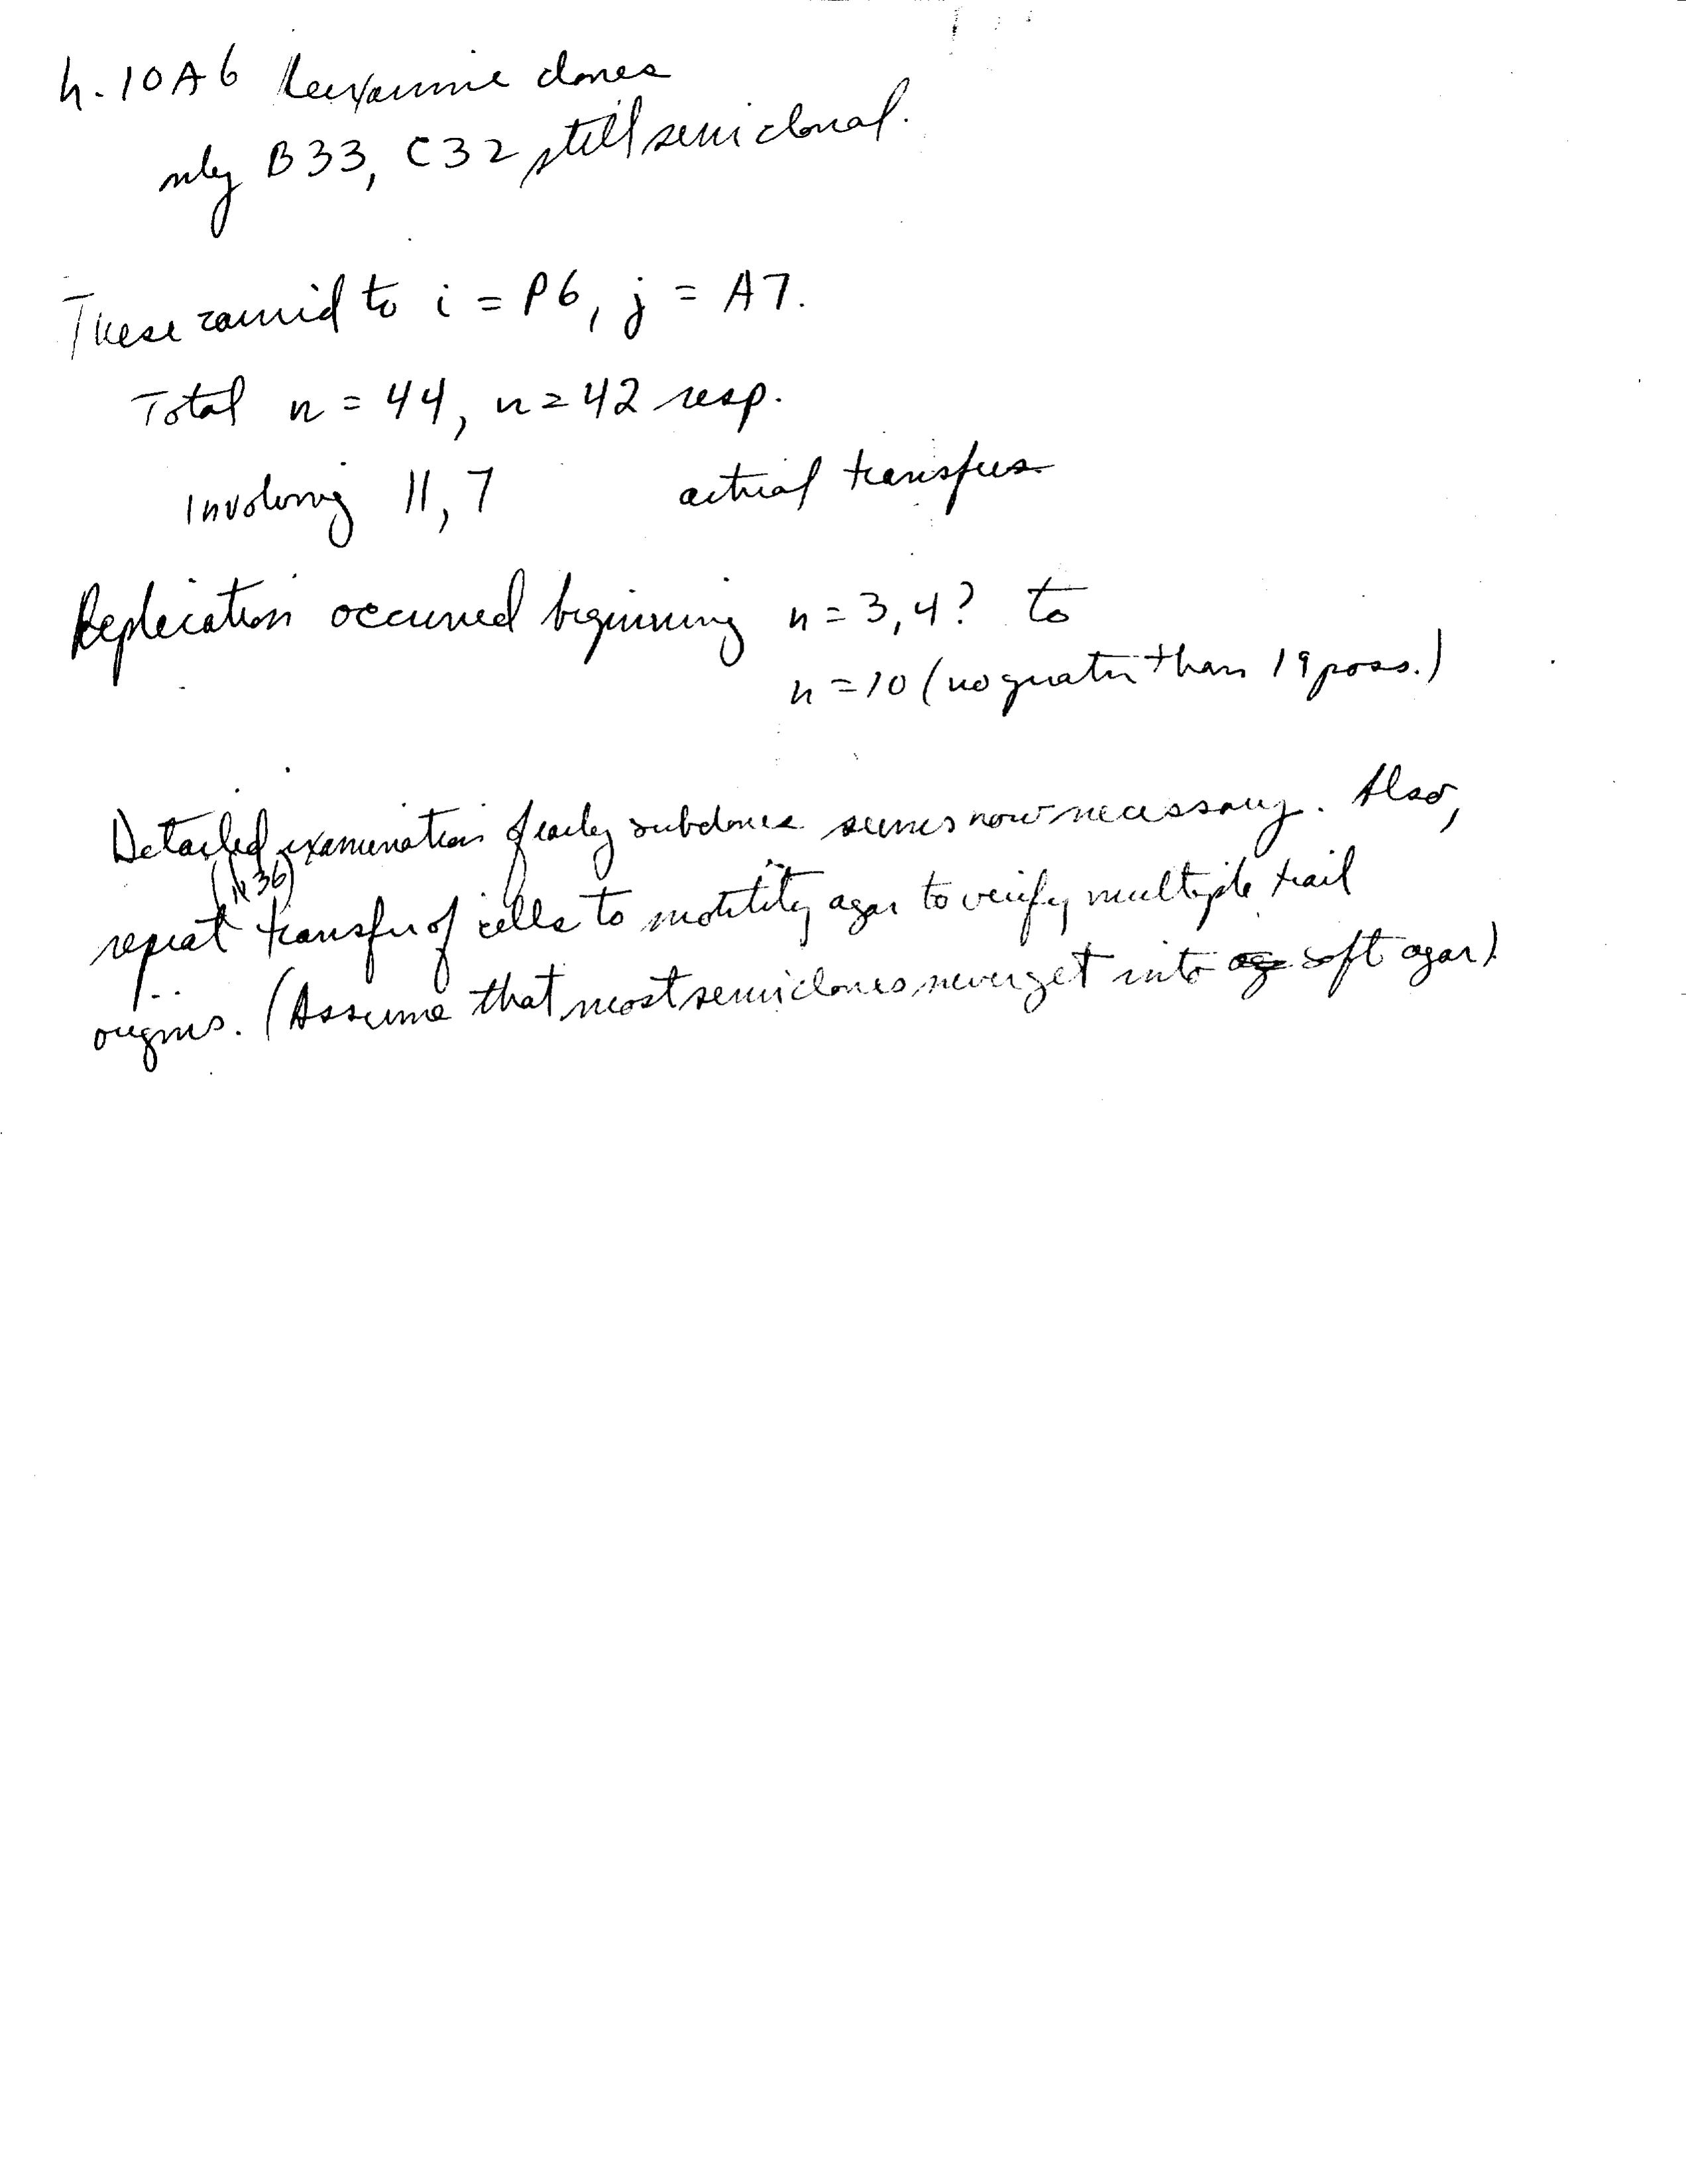 h. 10A6 Reexamine clones
only B33, C32 still semiclonal.
These carried to i = P6, j = A7.
Total n = 44, n = 42 resp.
Involving 11, 7 actual transfers
Replication occurred beginning n = 3, 4? to
n = 10 (no greater than 19 poss.)
Detailed examination of early subclones seems now necessary. Also,
repeat transfer of cells to motility agar to verify multiple trail
origins. (Assume that most semiclones never get into soft agar).